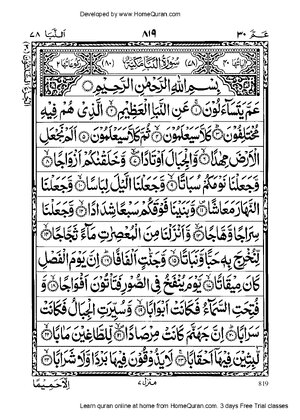 Developed by www.HomeQuran.com
النبا ٧٨
٨١٩
عم ٣٠
سورة النبا مكية
بِسْمِ اللهِ الرَّحْمٰنِ الرَّحِيْمِ
عَمَّ يَتَسَآءَلُوْنَ ۝١ عَنِ النَّبَاِ الْعَظِيْمِ ۝٢ الَّذِىْ هُمْ فِيْهِ
مُخْتَلِفُوْنَ ۝٣ كَلَّا سَيَعْلَمُوْنَ ۝٤ ثُمَّ كَلَّا سَيَعْلَمُوْنَ ۝٥ اَلَمْ نَجْعَلِ
الْاَرْضَ مِهٰدًا ۝٦ وَّالْجِبَالَ اَوْتَادًا ۝٧ وَّخَلَقْنٰكُمْ اَزْوَاجًا ۝٨
وَّجَعَلْنَا نَوْمَكُمْ سُبَاتًا ۝٩ وَّجَعَلْنَا الَّيْلَ لِبَاسًا ۝١٠ وَّجَعَلْنَا
النَّهَارَ مَعَاشًا ۝١١ وَّبَنَيْنَا فَوْقَكُمْ سَبْعًا شِدَادًا ۝١٢ وَّجَعَلْنَا
سِرَاجًا وَّهَّاجًا ۝١٣ وَّاَنْزَلْنَا مِنَ الْمُعْصِرٰتِ مَآءً ثَجَّاجًا ۝١٤
لِّنُخْرِجَ بِهٖ حَبًّا وَّنَبَاتًا ۝١٥ وَّجَنّٰتٍ اَلْفَافًا ۝١٦ اِنَّ يَوْمَ الْفَصْلِ
كَانَ مِيْقَاتًا ۝١٧ يَّوْمَ يُنْفَخُ فِى الصُّوْرِ فَتَاْتُوْنَ اَفْوَاجًا ۝١٨ وَّ
فُتِحَتِ السَّمَآءُ فَكَانَتْ اَبْوَابًا ۝١٩ وَّسُيِّرَتِ الْجِبَالُ فَكَانَتْ
سَرَابًا ۝٢٠ اِنَّ جَهَنَّمَ كَانَتْ مِرْصَادًا ۝٢١ لِّلطَّاغِيْنَ مَاٰبًا ۝٢٢
لّٰبِثِيْنَ فِيْهَآ اَحْقَابًا ۝٢٣ لَا يَذُوْقُوْنَ فِيْهَا بَرْدًا وَّلَا شَرَابًا ۝٢٤
اِلَّا حَمِيْمًا
منزل ٧
819
Learn quran online at home from HomeQuran.com. 3 days Free Trial classes